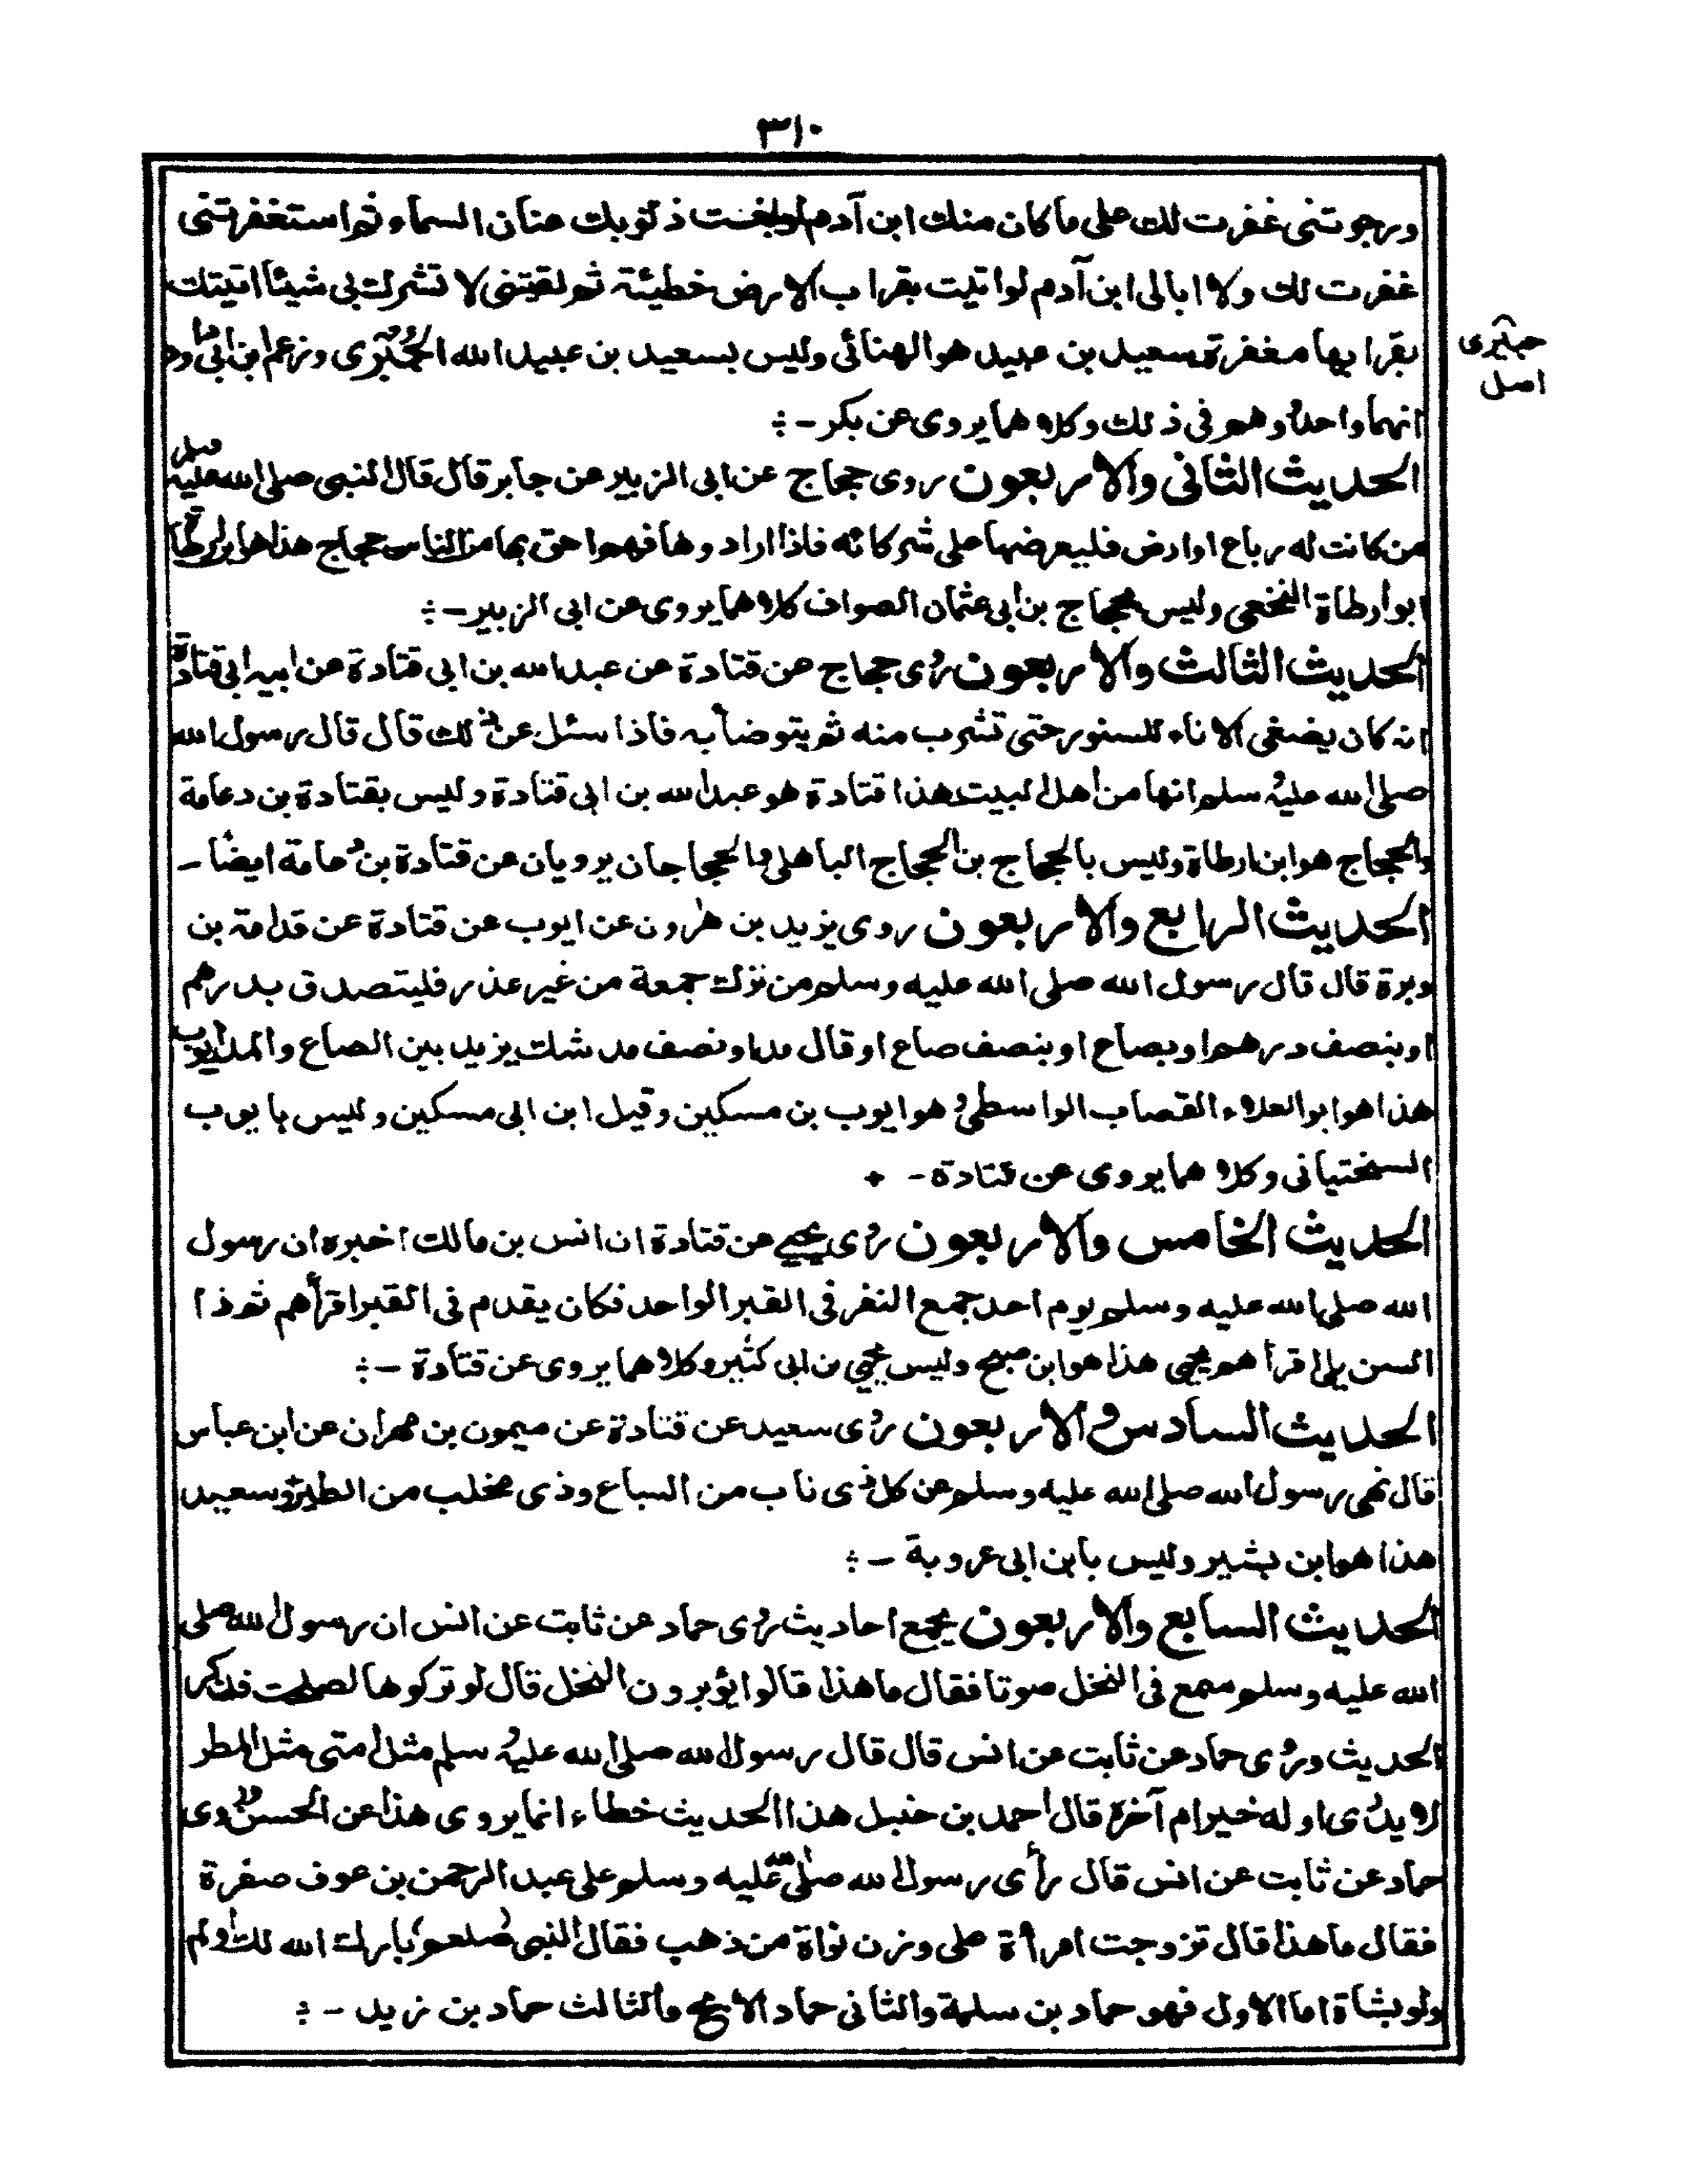 ٣١٠
ورجوتنى غفرت لك على ما كان منك ابن آدم لو بلغت ذنوبك عنان السماء ثم استغفرتنى
غفرت لك ولا ابالى ابن آدم لو اتيت بقراب الارض خطيئة ثم لقيتنى لا تشرك بى شيئا اتيتك
بقرابها مغفرة سعيد بن عبيد هو الهنائى وليس بسعيد بن عبيد الله الجبيرى وزعم ابن ابى داود
حبيرى
اصل
انهما واحد وهم فى ذلك وكلاهما يروى عن بكر -:
الحديث الثانى والاربعون روى حجاج عن ابى الزبير عن جابر قال قال النبى صلى الله عليه وسلم
من كانت له رباع او ارض فليعرضها على شركائه فاذا ارادوها فهم احق بها من الناس حجاج هذا هو ابن ارطاة
ابو ارطاة النخعى وليس بحجاج بن ابى عثمان الصواف كلاهما يروى عن ابى الزبير -:
الحديث الثالث والاربعون روى حجاج عن قتادة عن عبد الله بن ابى قتادة عن ابيه ابى قتادة
انه كان يضغى الاناء للسنور حتى تشرب منه ثم يتوضأ به فاذا سئل عن ذلك قال قال رسول الله
صلى الله عليه وسلم انها من اهل البيت هذا قتادة هو عبد الله بن ابى قتادة وليس بقتادة بن دعامة
والحجاج هو ابن ارطاة وليس بالحجاج بن الحجاج الباهلى والحجاجان يرويان عن قتادة بن دعامة ايضا -
الحديث الرابع والاربعون روى يزيد بن هٰرون عن ايوب عن قتادة عن قدامة بن
وبرة قال قال رسول الله صلى الله عليه وسلم من ترك جمعة من غير عذر فليتصدق بدرهم
او بنصف درهم او بصاع او بنصف صاع او قال مد او نصف مد شك يزيد بين الصاع والمد ايوب
هذا هو ابو العلاء القصاب الواسطى وهو ايوب بن مسكين وقيل ابن ابى مسكين وليس بايوب
السختيانى وكلاهما يروى عن قتادة - +
الحديث الخامس والاربعون روى يحيى عن قتادة ان انس بن مالك اخبره ان رسول
الله صلى الله عليه وسلم يوم احد جمع النفر فى القبر الواحد فكان يقدم فى القبر اقرأهم ثم ذا
السن يلى اقرأهم يحيى هذا هو ابن صبيح وليس يحيى بن ابى كثير وكلاهما يروى عن قتادة -:
الحديث السادس والاربعون روى سعيد عن قتادة عن ميمون بن مهران عن ابن عباس
قال نهى رسول الله صلى الله عليه وسلم عن كل ذى ناب من السباع وذى مخلب من الطير وسعيد
هذا هو ابن بشير وليس بابن ابى عروبة -:
الحديث السابع والاربعون يجمع احاديث روى حماد عن ثابت عن انس ان رسول الله صلى
الله عليه وسلم سمع فى النخل صوتا فقال ما هذا قالوا يؤبرون النخل قال لو تركوها لصلحت فذكر
الحديث وروى حماد عن ثابت عن انس قال قال رسول الله صلى الله عليه وسلم مثل امتى مثل المطر
لا يدرى اوله خير ام آخرة قال احمد بن حنبل هذا الحديث خطاء انما يروى هذا عن الحسن وروى
حماد عن ثابت عن انس قال رأى رسول الله صلى الله عليه وسلم على عبد الرحمن بن عوف صفرة
فقال ما هذا قال تزوجت امرأة على وزن نواة من ذهب فقال النبى صلعم بارك الله لك اولم
ولو بشاة اما الاول فهو حماد بن سلمة والثانى حماد الابح والثالث حماد بن زيد -: